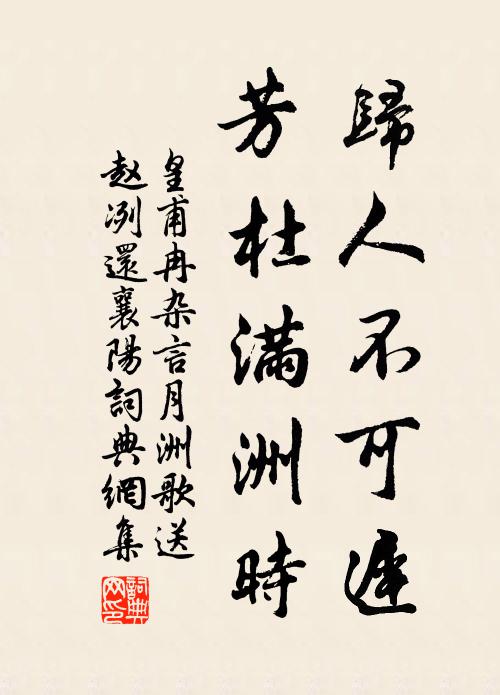 歸人不可遲
芳杜滿洲時
皇甫冉杂言月洲歌送
赵冽還襄陽詞典網集
詞典網印